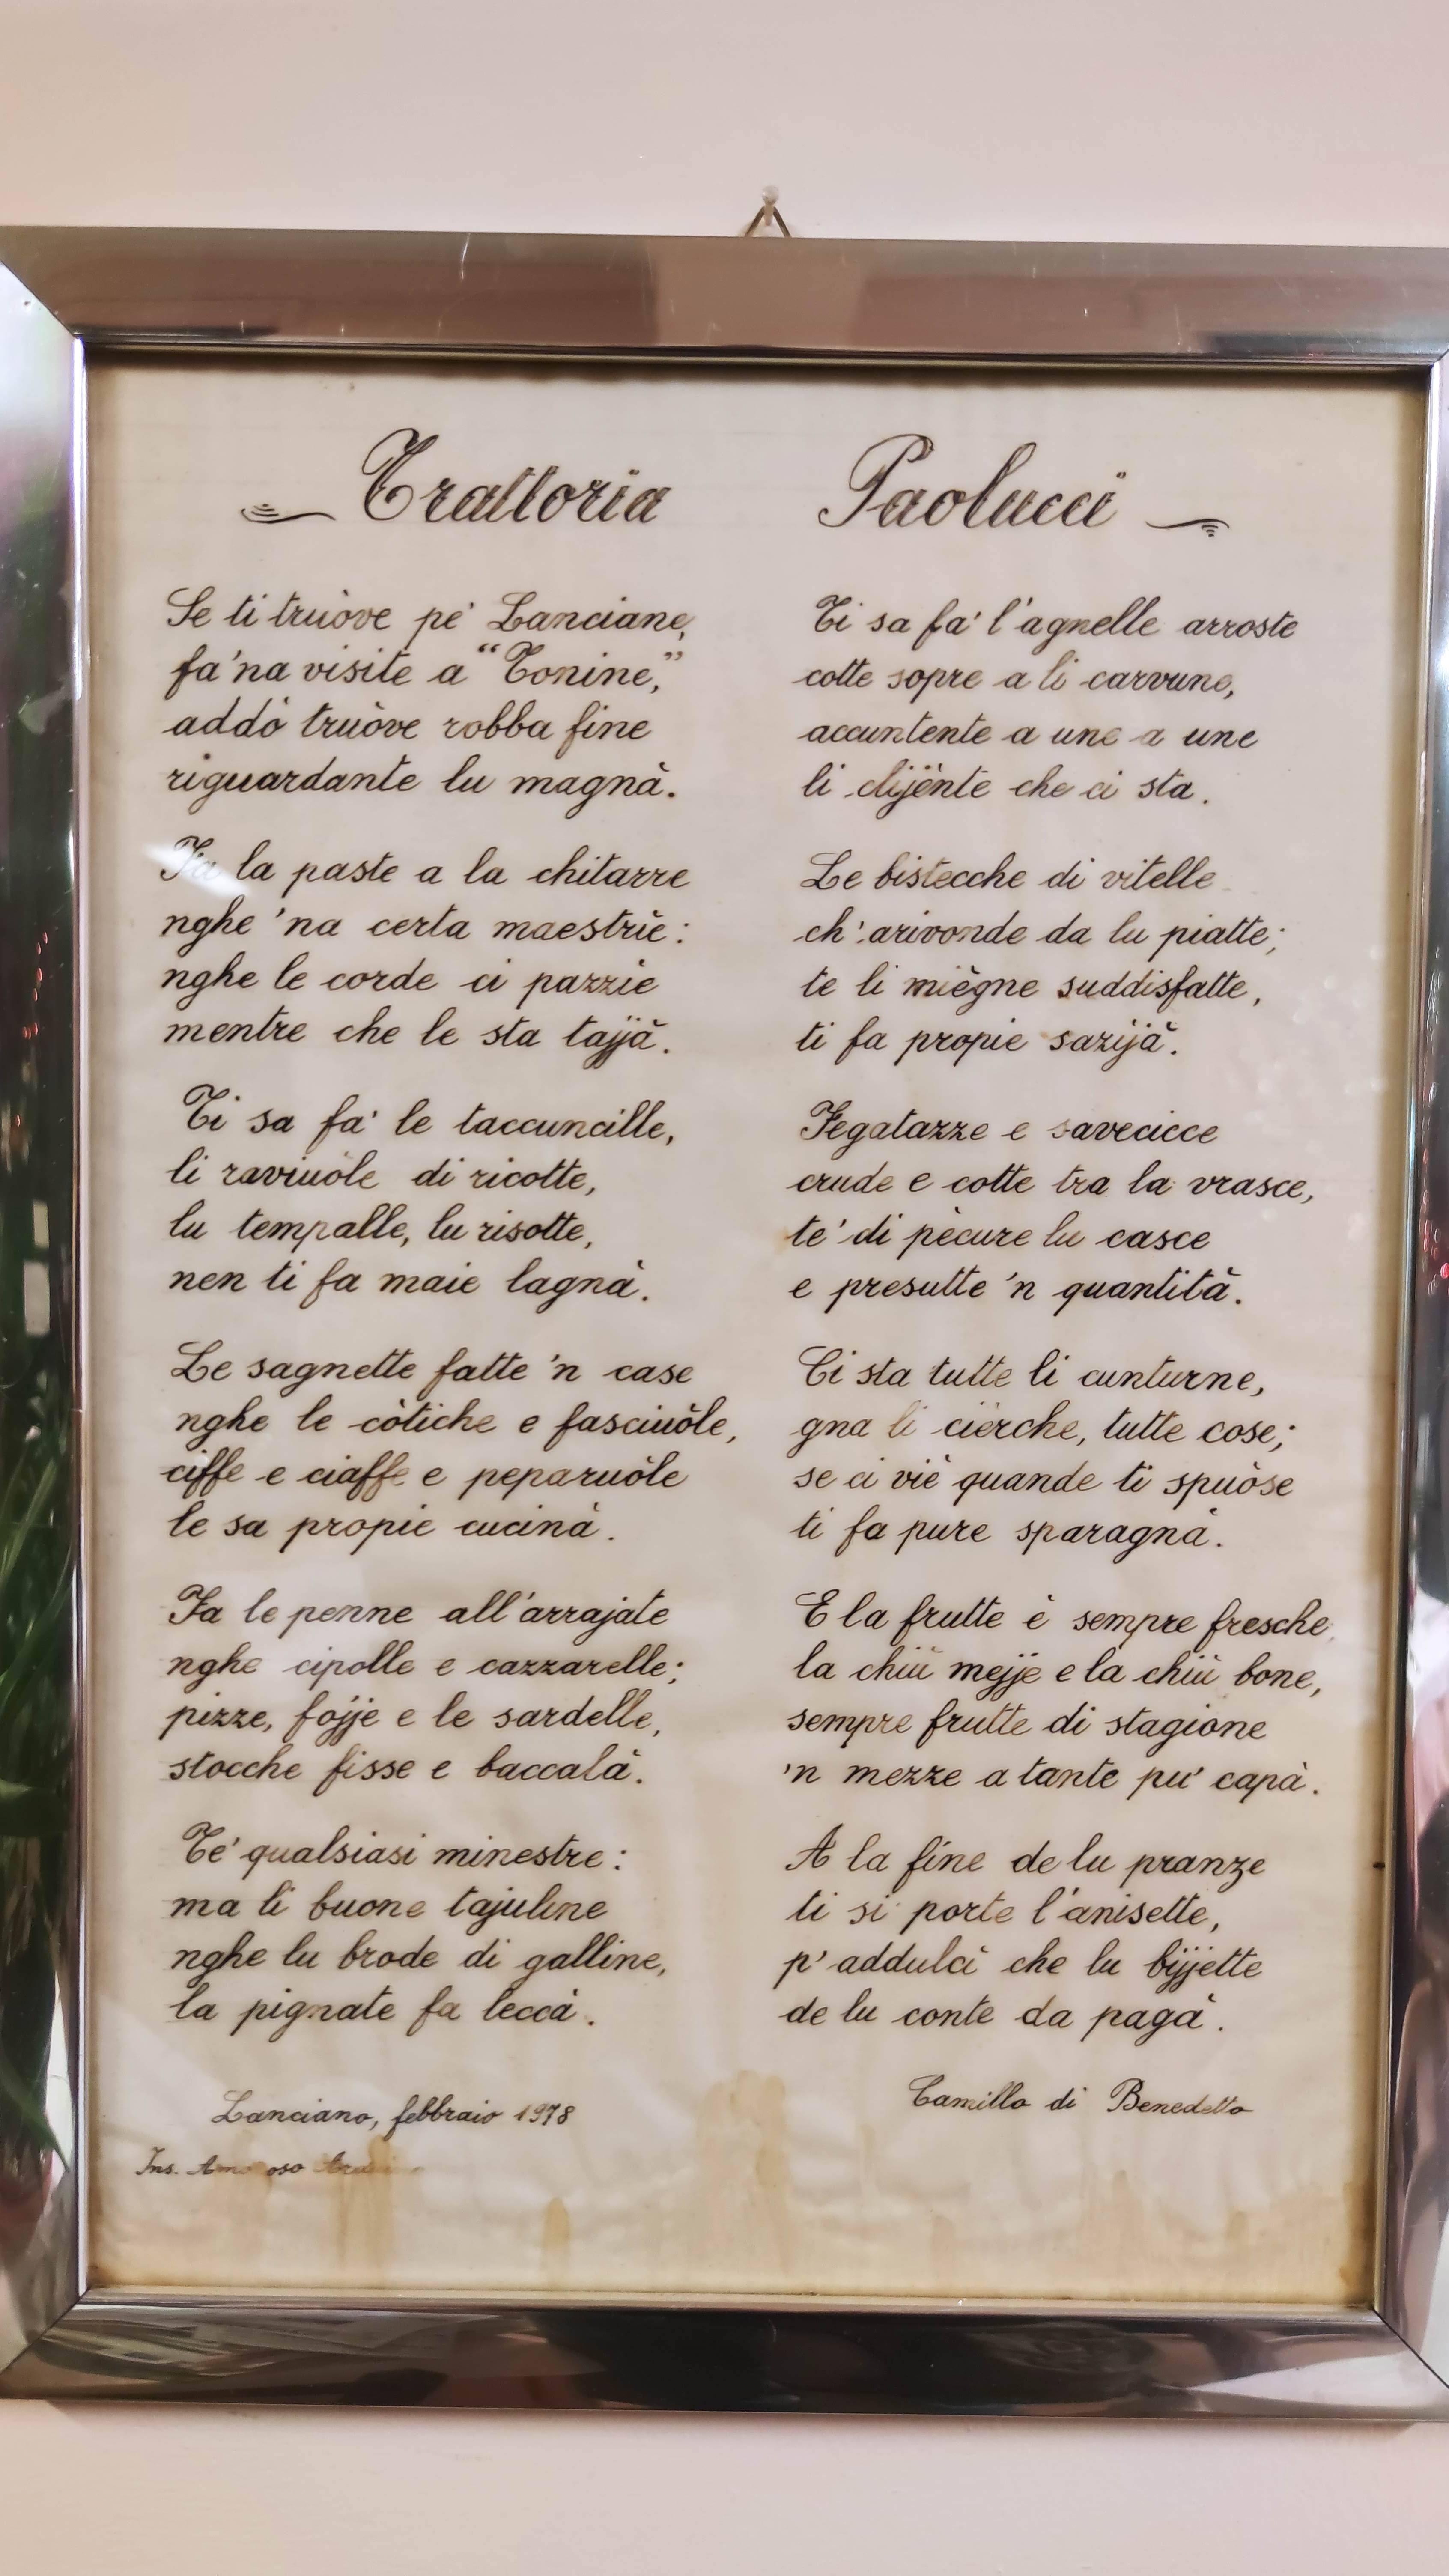 Trattoria Paolucci
Se ti truòve pe' Lanciane,
fa 'na visite a "Tonine,"
addò truòve robba fine
riguardante lu magnà.
Fa la paste a la chitarre
nghe 'na certa maestrìe:
nghe le corde ci pazzìe
mentre che le sta tajjà.
Ti sa fa' le taccuncille,
li raviuòle di ricotte,
lu tempalle, lu risotte,
nen ti fa maie lagnà.
Le sagnette fatte 'n case
nghe le còtiche e fasciuòle,
ciffe e ciaffe e peparuòle
le sa propie cucinà.
Fa le penne all'arrajate
nghe cipolle e cazzarelle;
pizze, fojje e le sardelle,
stocche fisse e baccalà.
Te' qualsiasi minestre:
ma li buone tajuline
nghe lu brode di galline,
la pignate fa leccà.
Lanciano, febbraio 1978
Ins.
Ti sa fa' l'agnelle arroste
cotte sopre a li carvune,
accuntente a une a une
li clijènte che ci sta.
Le bistecche di vitelle
ch'arivonde da lu piatte;
te li mìègne suddisfatte,
ti fa propie sazijà.
Fegatazze e savecicce
crude e cotte tra la vrasce,
te' di pècure lu casce
e presutte 'n quantità.
Ci sta tutte li cunturne,
gna li cièrche, tutte cose;
se ci viè quande ti spuòse
ti fa pure sparagnà.
E la frutte è sempre fresche,
la chiù mejje e la chiù bone,
sempre frutte di stagione
'n mezze a tante pu' capà.
A la fine de lu pranze
ti si porte l'anisette,
p'addulcì che lu bijjette
de lu conte da pagà.
Camillo di Benedetto